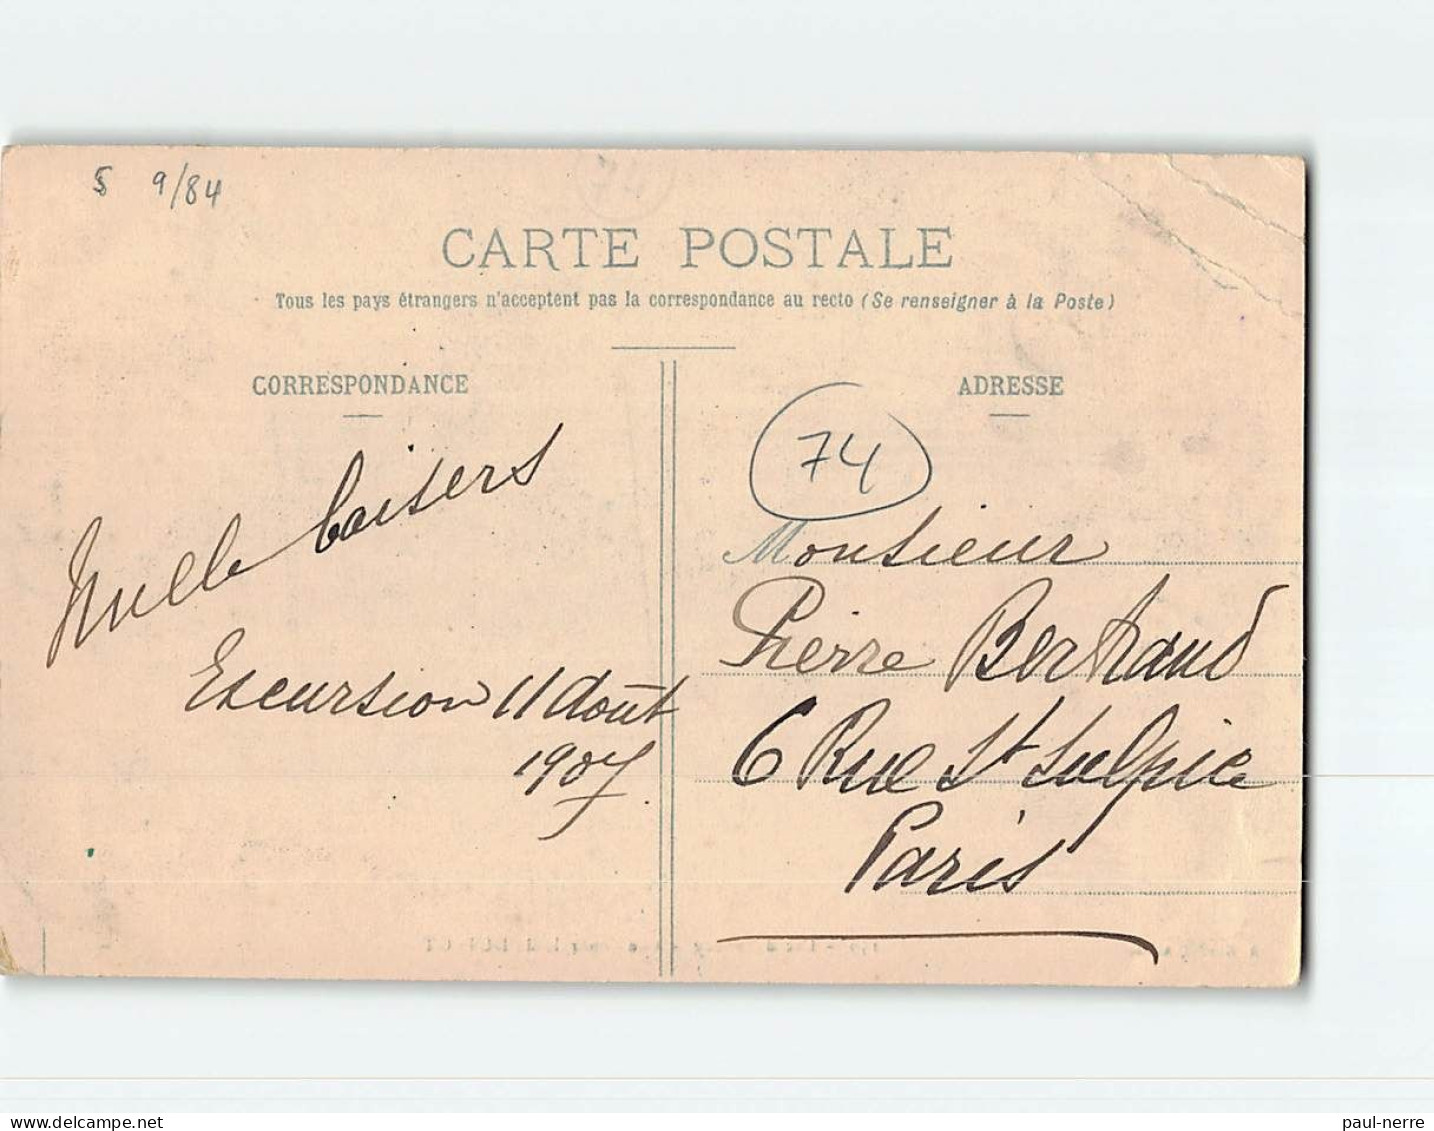 5 9/84
CARTE POSTALE
Tous les pays étrangers n'acceptent pas la correspondance au recto (Se renseigner à la Poste)
CORRESPONDANCE
baisers
Excursion 11 août
1907
ADRESSE
74
Monsieur
Pierre Bertrand
6 Rue St Sulpice
Paris
paul-nerre